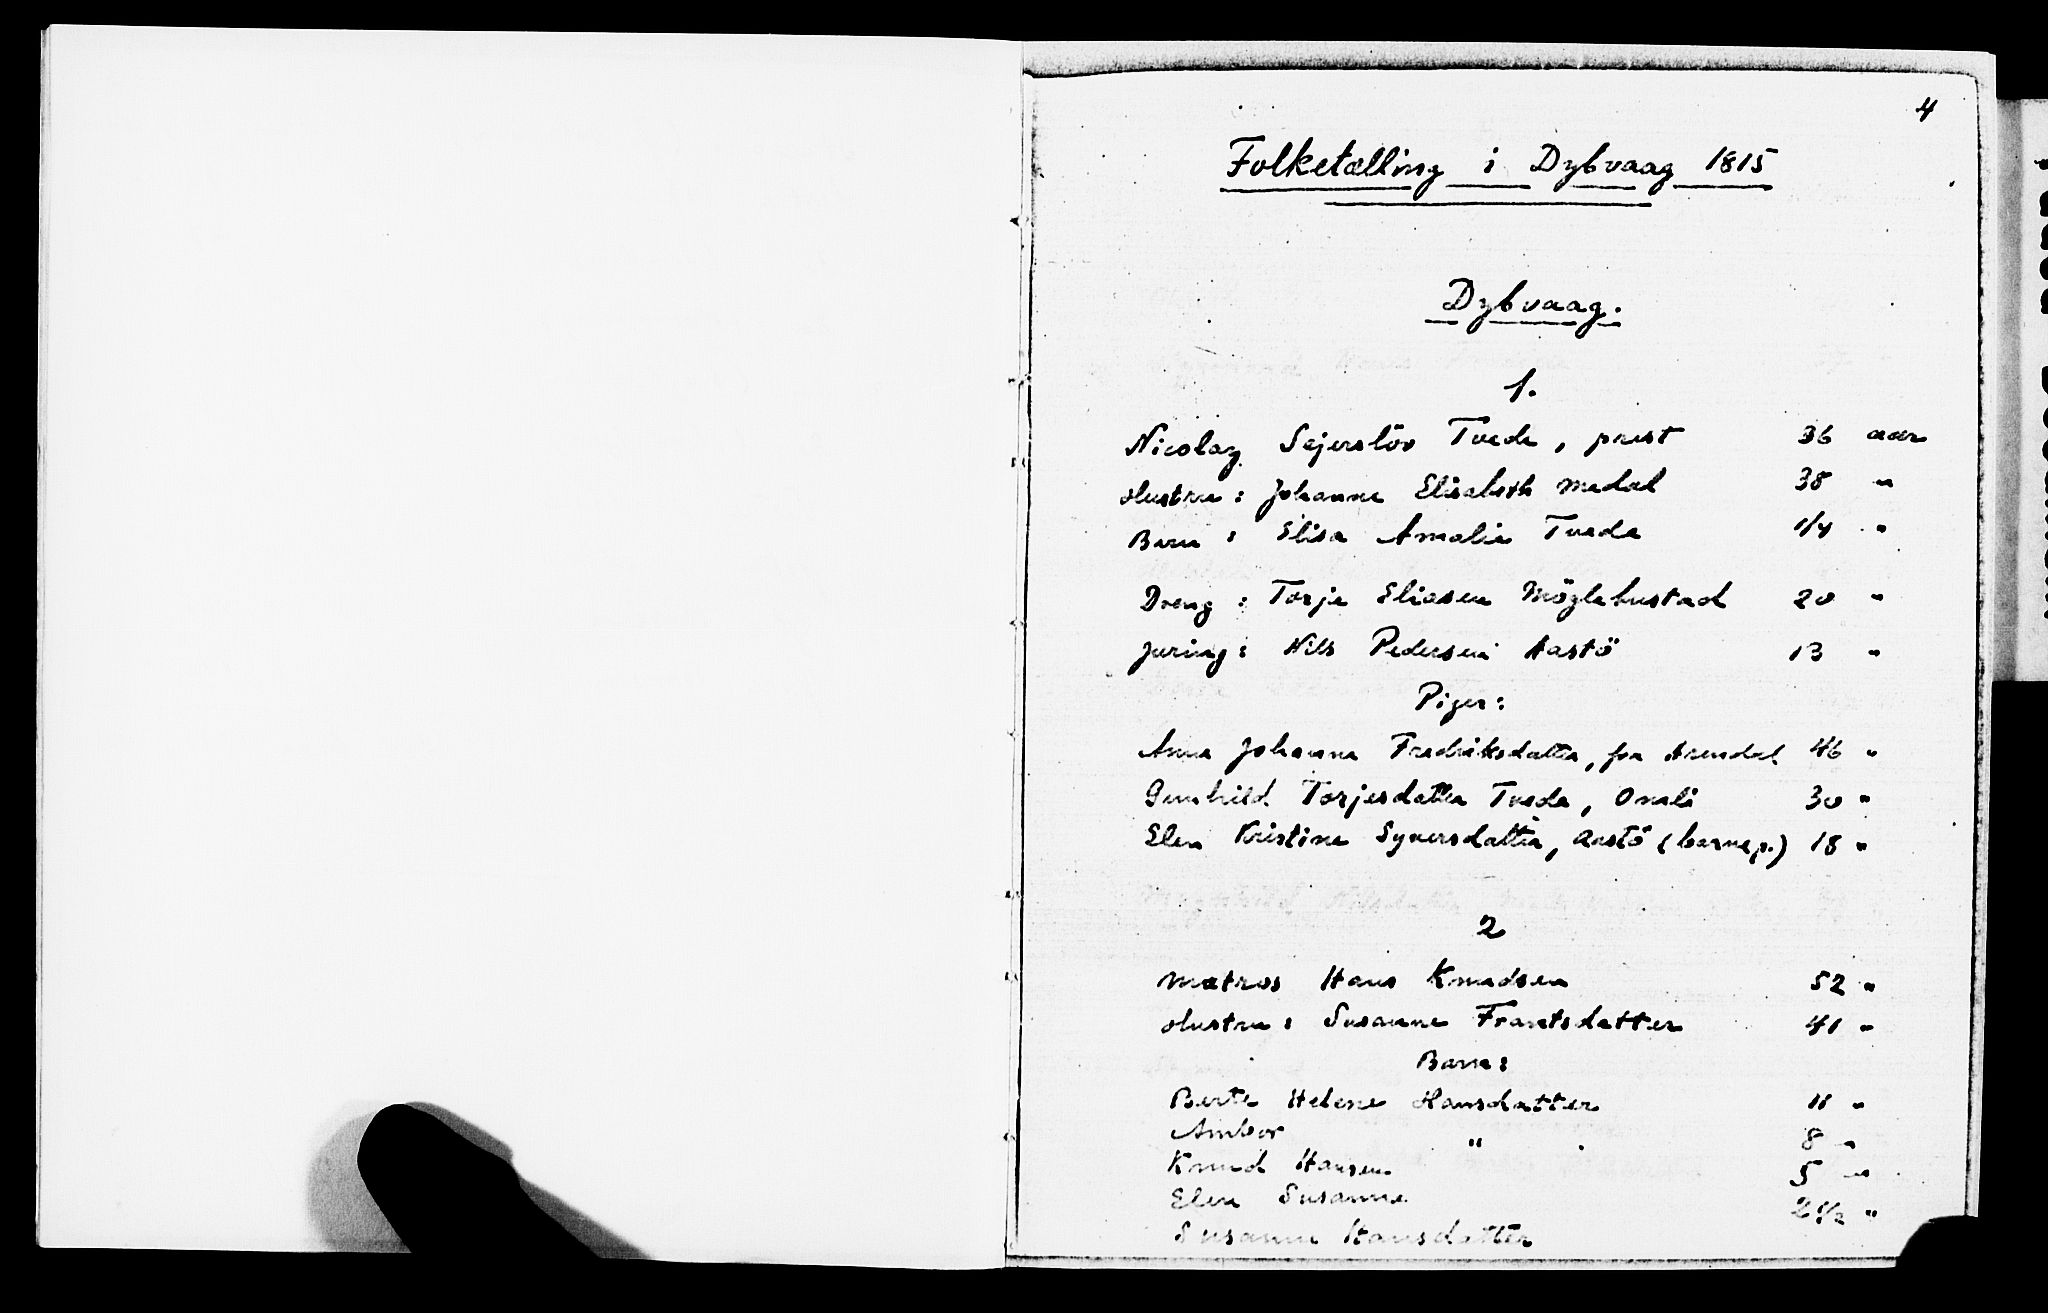 4
Folketælling i Dybvaag 1815
Dybvaag.
1.
Nicolay Sejerslöv Tvede, prest 36 aar
Hustru: Johanne Elisabeth Medal 38 "
Barn: Elisa Amalie Tvede 1/4 "
Dreng: Torje Eliasen Möglebustad 20 "
Juring: Nils Pedersen Aastö 13 "
Piger:
Anne Johanne Fredriksdatter, fra Arendal 46 "
Gunhild Torjesdatter Tvede, Omli 30 "
Elen Kristine Syversdatter, Aastö (barnep.) 18 "
2
Matros Hans Knudsen 52 "
Hustru: Susanne Frantsdatter 41 "
Barn:
Berte Helene Hansdatter 11 "
Ambor " 8 "
Knud Hansen 5 "
Elen Susanne 2 1/2 "
Susanne Hansdatter